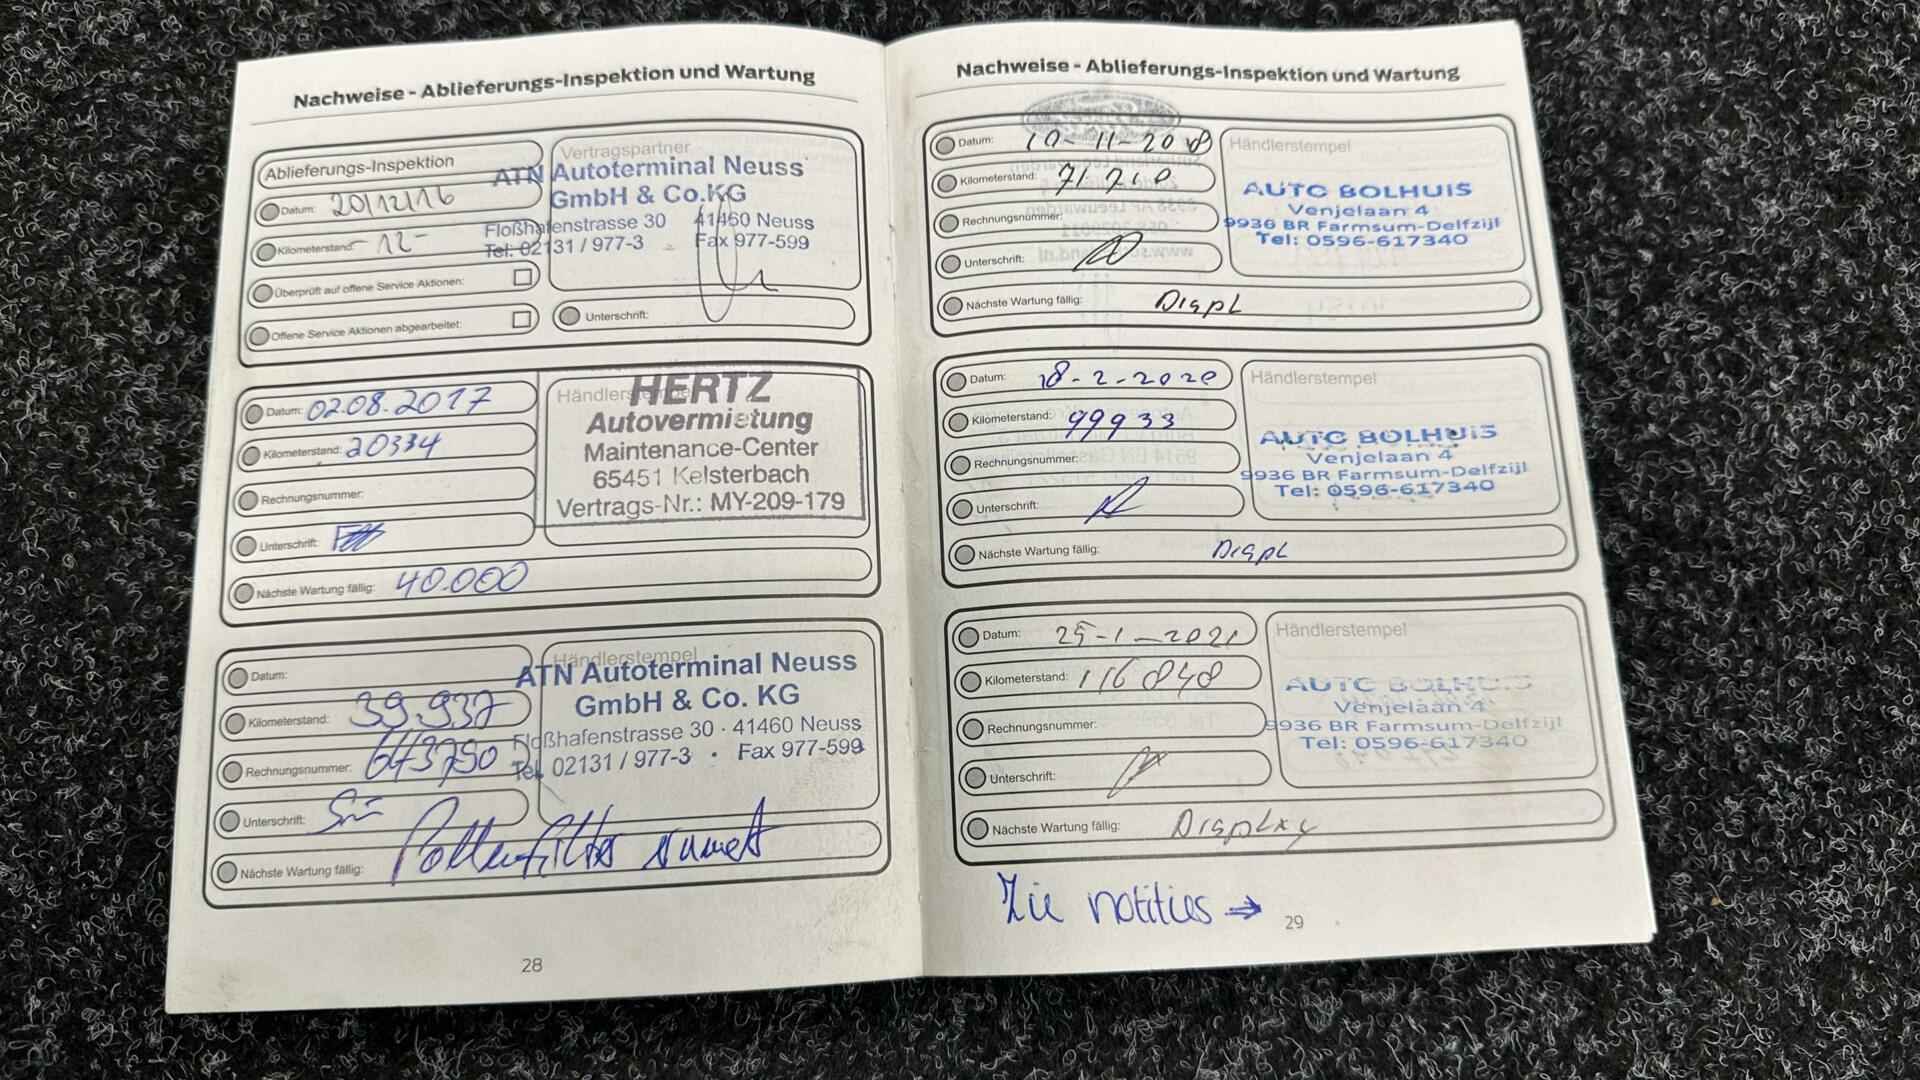 Nachweise - Ablieferungs-Inspektion und Wartung
Ablieferungs-Inspektion
Datum: 20/12/16
Kilometerstand: -12-
Überprüft auf offene Service Aktionen:
Offene Service Aktionen abgearbeitet:
Vertragspartner
ATN Autoterminal Neuss
GmbH & Co.KG
Floßhafenstrasse 30 41460 Neuss
Tel: 02131 / 977-3 Fax 977-599
Unterschrift:
Datum: 02.08.2017
Kilometerstand: 20334
Rechnungsnummer:
Unterschrift:
Nächste Wartung fällig: 40.000
HERTZ
Autovermietung
Maintenance-Center
65451 Kelsterbach
Vertrags-Nr.: MY-209-179
Datum:
Kilometerstand: 39.937
Rechnungsnummer: 643750
Unterschrift:
Nächste Wartung fällig: Pollenfilter
Händlerstempel
ATN Autoterminal Neuss
GmbH & Co. KG
Floßhafenstrasse 30 · 41460 Neuss
Tel. 02131 / 977-3 · Fax 977-599
28
Nachweise - Ablieferungs-Inspektion und Wartung
Datum: 19-11-2018
Kilometerstand: 71.210
Rechnungsnummer:
Unterschrift:
Nächste Wartung fällig: Displ
Händlerstempel
AUTO BOLHUIS
Venjelaan 4
9936 BR Farmsum-Delfzijl
Tel: 0596-617340
Datum: 18-2-2020
Kilometerstand: 99933
Rechnungsnummer:
Unterschrift:
Nächste Wartung fällig: Displ
Händlerstempel
AUTO BOLHUIS
Venjelaan 4
9936 BR Farmsum-Delfzijl
Tel: 0596-617340
Datum: 25-1-2021
Kilometerstand: 116848
Rechnungsnummer:
Unterschrift:
Nächste Wartung fällig: Display
Händlerstempel
AUTO BOLHUIS
Venjelaan 4
9936 BR Farmsum-Delfzijl
Tel: 0596-617340
Zie notities →
29